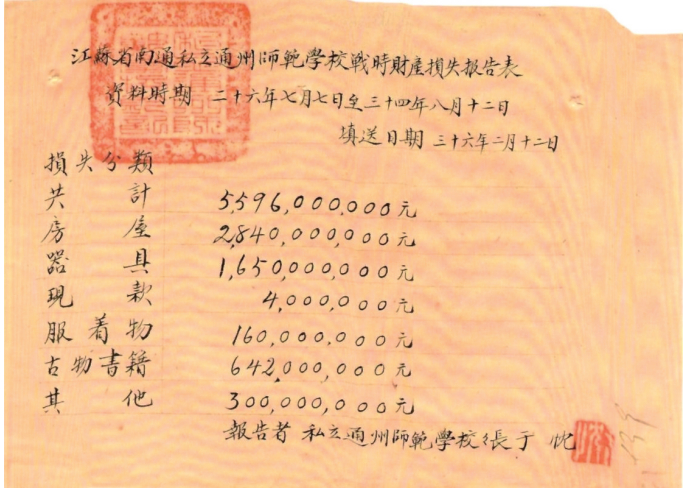 江蘇省南通私立通州師範學校戰時財產損失報告表
資料時期 二十六年七月七日至三十四年八月十二日
填送日期 三十六年二月十二日
損失分類
共計 5,596,000,000元
房屋 2,840,000,000元
器具 1,650,000,000元
現款 4,000,000元
服着物 160,000,000元
古物書籍 642,000,000元
其他 300,000,000元
報告者 私立通州師範學校校長于忱